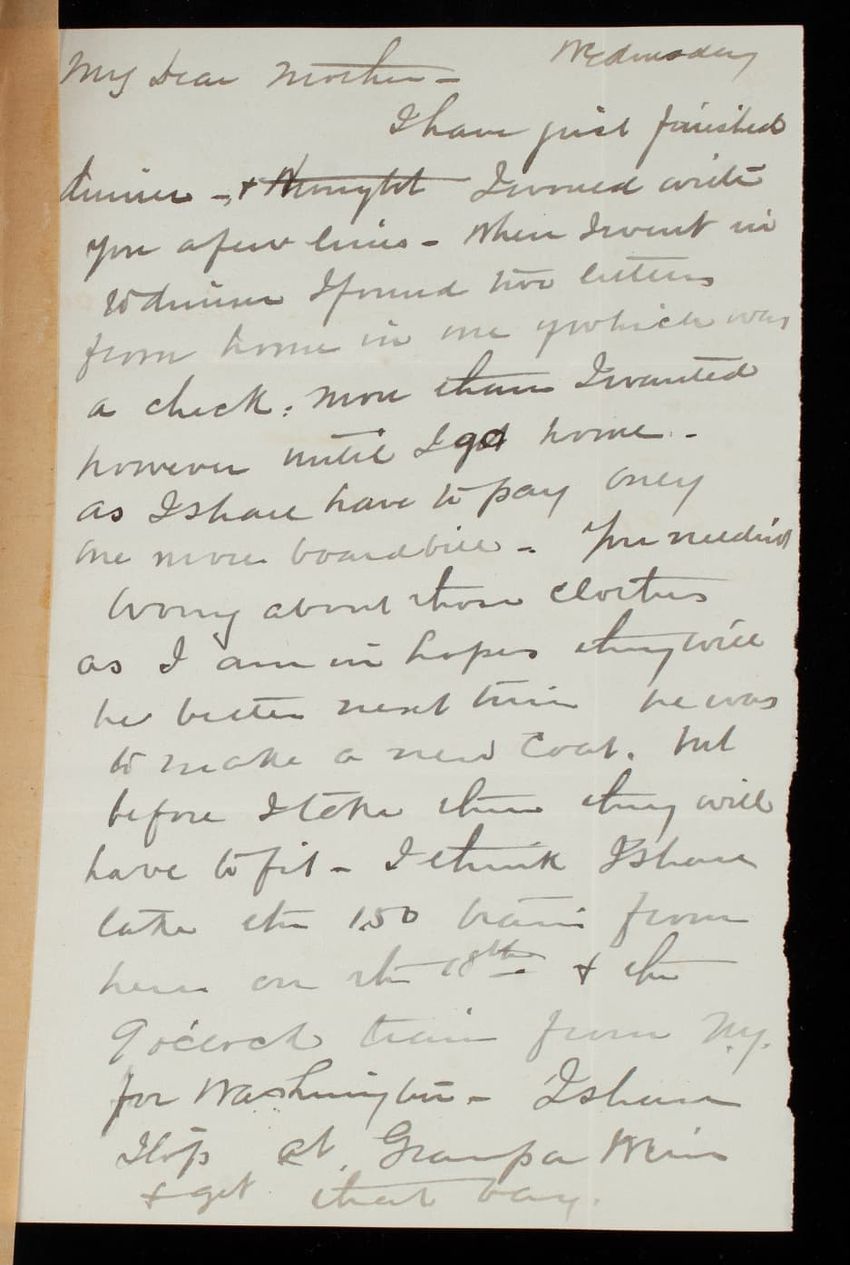 Wednesday
My Dear Mother -
I have just finished
dinner - & thought I would write
you a few lines - When I went in
to dinner I found two letters
from home in one of which was
a check; more than I wanted
however until I get home. -
as I shall have to pay only
one more board bill - You needn't
worry about those clothes
as I am in hopes they will
be better next time he was
to make a new coat. but
before I take them they will
have to fit - I think I shall
take the 1.50 train from
here on the 18th & the
9 o'clock train from N.Y.
for Washington - I shall
stop at Grandpa
& get that bag.